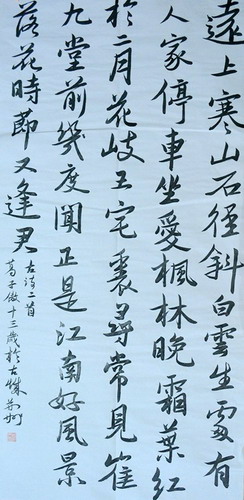 遠上寒山石徑斜白雲生處有
人家停車坐愛楓林晚霜葉紅
於二月花岐王宅裏尋常見崔
九堂前幾度聞正是江南好風景
落花時節又逢君
古詩二首
葛子傲十三歲於古城荊州